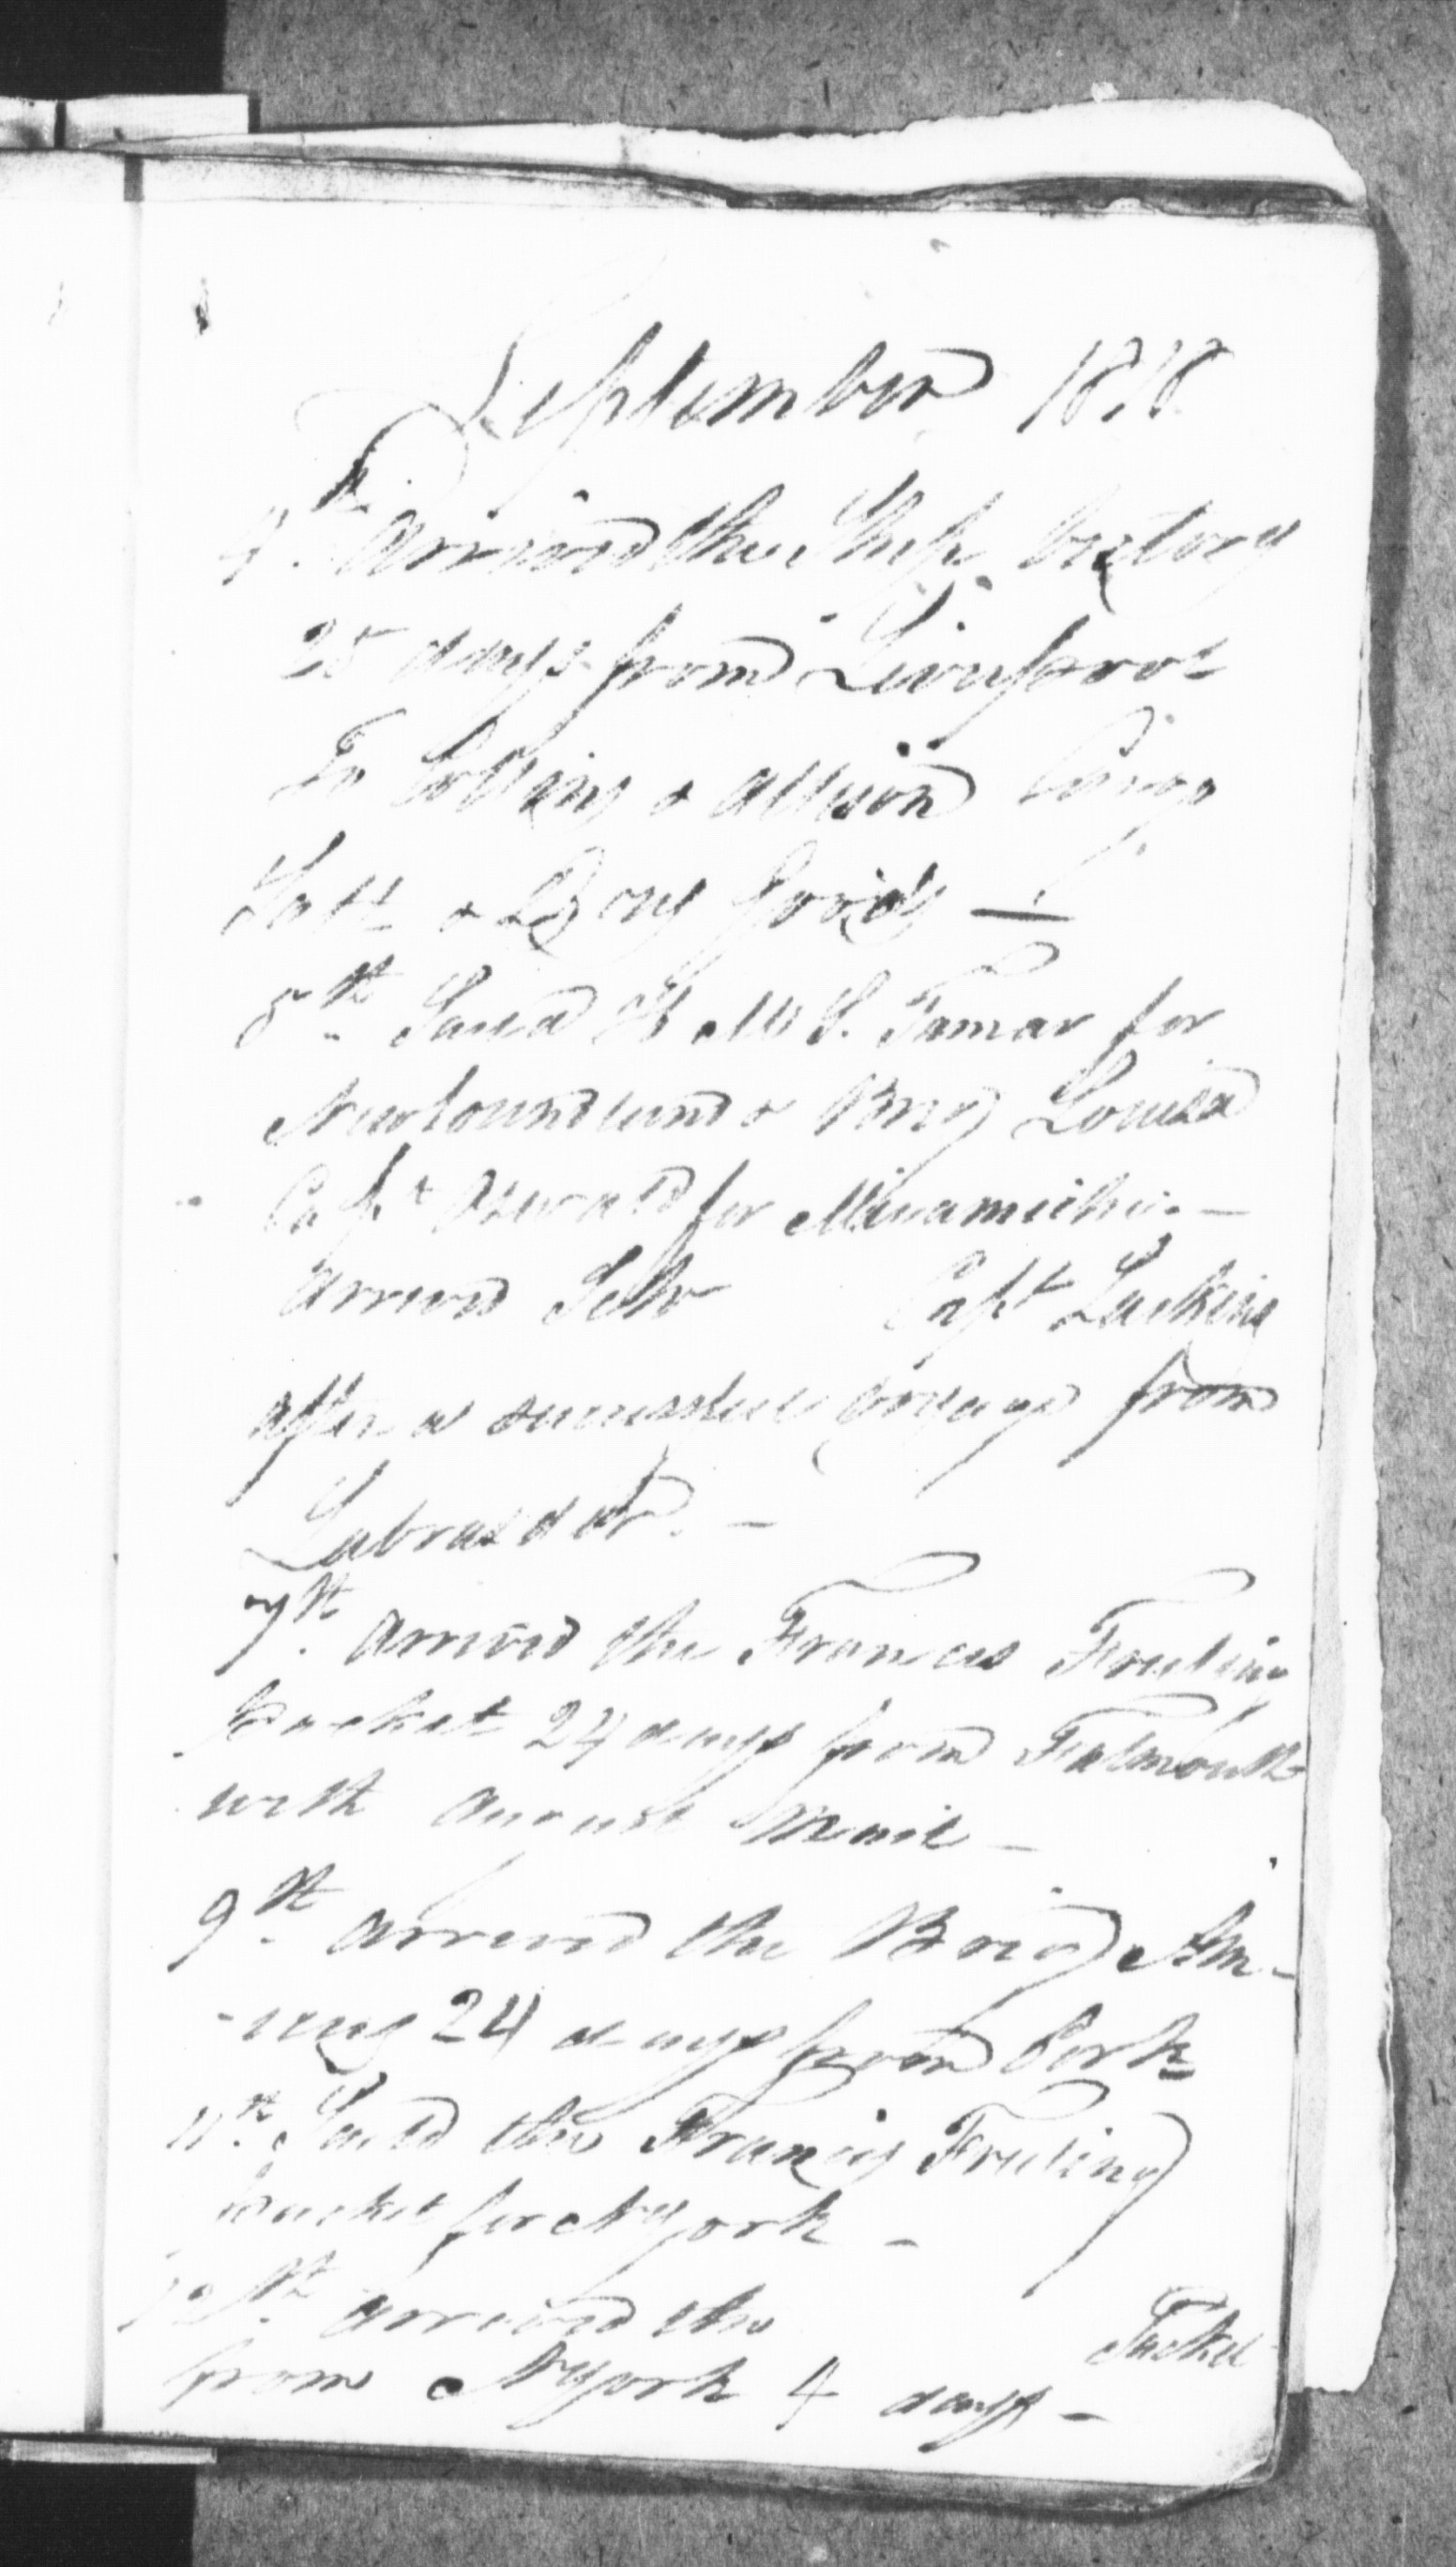 September 1818
4th. Arrived the Ship Victory
25 days from Liverpool
To Collins & Allison Cargo
Salt & Dry Goods —
5th. Sailed H M S. Tamar for
Newfoundland & Brig Louisa
Capt Oswald for Miramichi. —
arrived Schr Capt
after a successful voyage from
Labrador. —
7th. arrived the Francis Freeling
packet 24 days from Falmouth
with August Mail —
9th. arrived the Brig
24 days from Cork
11th. Saild the Francis Freeling
Packet for NYork —
12th. arrived the Packet
from NYork 4 days —